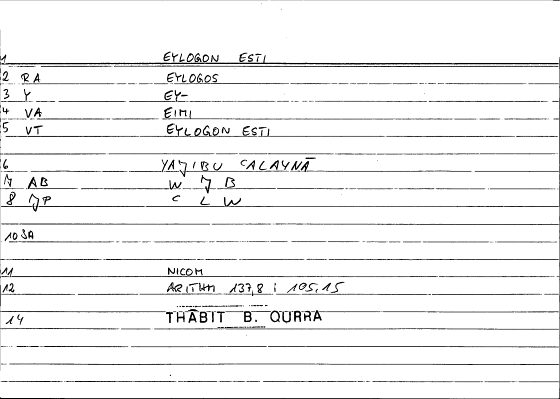 1 EYLOGON ESTI
2 RA EYLOGOS
3 Y EY-
4 VA EIMI
5 VT EYLOGON ESTI
6 YAJIBU CALAYNĀ
7 AB W J B
8 JP C L W
10 3A
11 NICOM
12 ARITHM 137,8 ; 105,15
14 THĀBIT B. QURRA